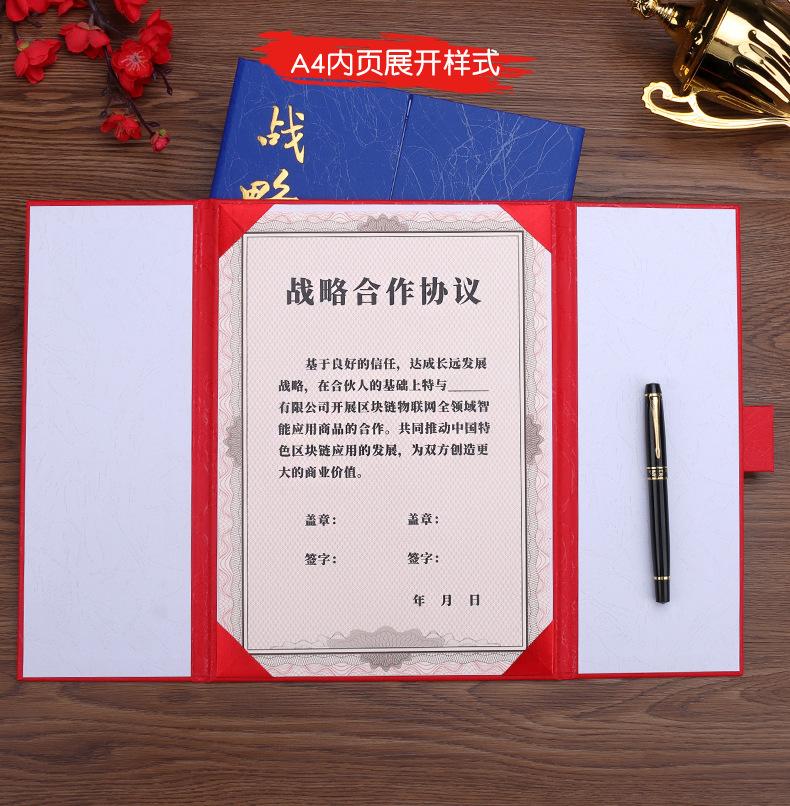 A4内页展开样式
战
略
战略合作协议
基于良好的信任，达成长远发展
战略，在合伙人的基础上特与______
有限公司开展区块链物联网全领域智
能应用商品的合作。共同推动中国特
色区块链应用的发展，为双方创造更
大的商业价值。
盖章： 盖章：
签字： 签字：
年 月 日